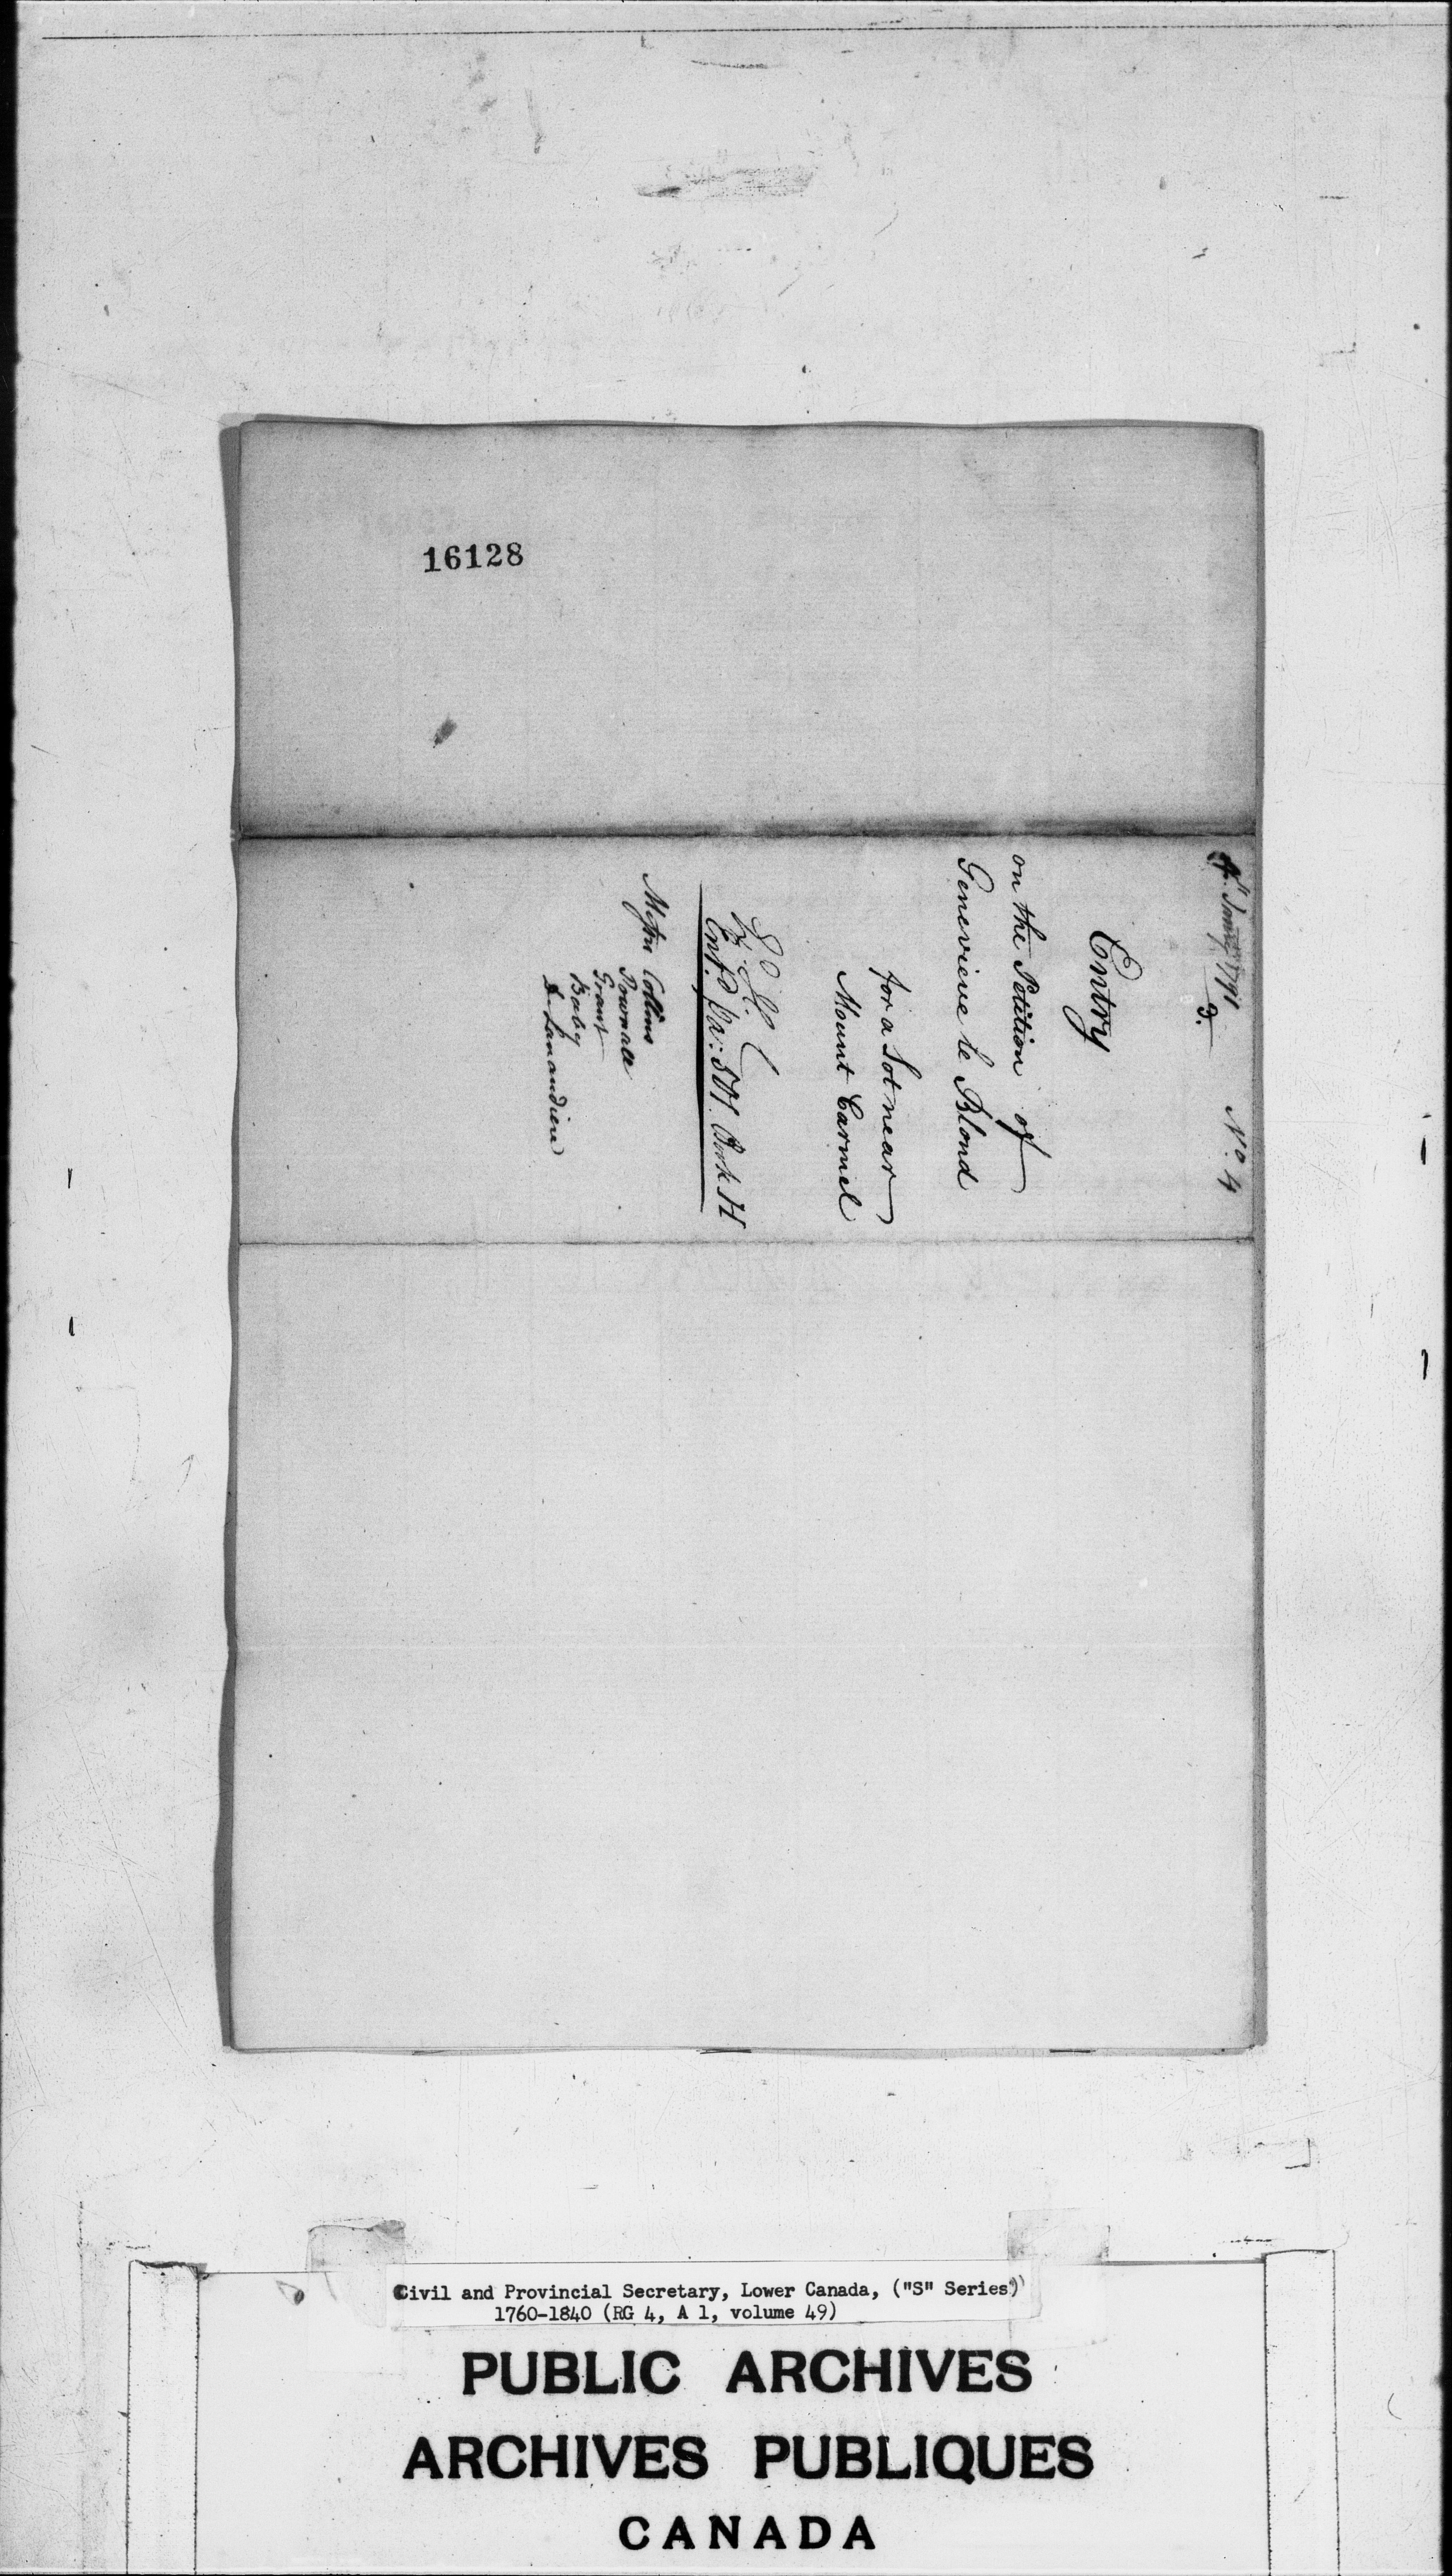 16128
4. Janry 1791 No. 4
3.
Entry
on the Petition of
Genevieve le Blond
for a Lot near
Mount Carmel
Ent.d Pa: 501. Book H
Messrs Collins
Pownall
Grant
Baby
& Lanaudiere
Civil and Provincial Secretary, Lower Canada, ("S" Series)
1760-1840 (RG 4, A 1, volume 49)
PUBLIC ARCHIVES
ARCHIVES PUBLIQUES
CANADA